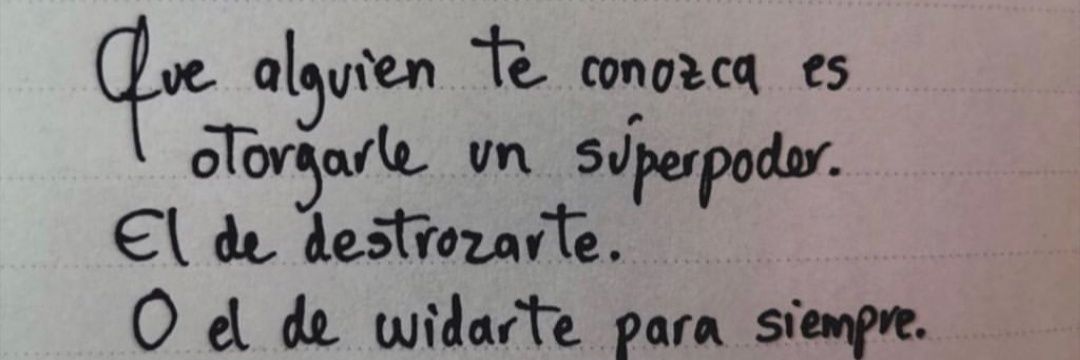 Que alguien te conozca es
otorgarle un súperpoder.
El de destrozarte.
O el de cuidarte para siempre.